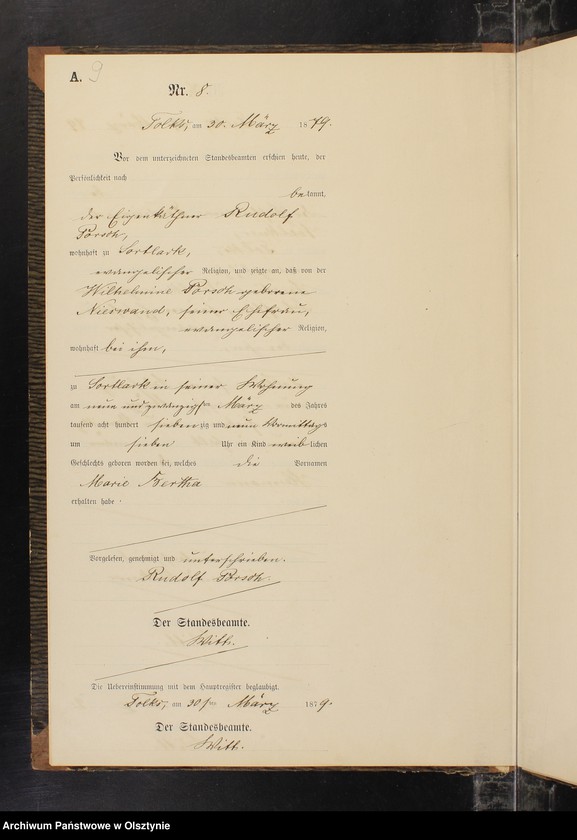 A. 9
Nr. 8.
Tolks, am 30. März 1879.
Vor dem unterzeichneten Standesbeamten erschien heute, der
Persönlichkeit nach
bekannt,
der Eigenkäthner Rudolf
Porsch,
wohnhaft zu Sortlack,
evangelischer Religion, und zeigte an, daß von der
Wilhelmine Porsch geborene
Nierwand, seiner Ehefrau,
evangelischer Religion,
wohnhaft bei ihm,
zu Sortlack in seiner Wohnung
am neun und zwanzigst März des Jahres
tausend acht hundert siebenzig und neun Vormittags
um sieben Uhr ein Kind weiblichen
Geschlechts geboren worden sei, welches die Vornamen
Marie Bertha
erhalten habe.
Vorgelesen, genehmigt und unterschrieben.
Rudolf Porsch.
Der Standesbeamte.
Witt.
Die Uebereinstimmung mit dem Hauptregister beglaubigt.
Tolks, am 30ten März 1879.
Der Standesbeamte.
Witt.
Archiwum Państwowe w Olsztynie